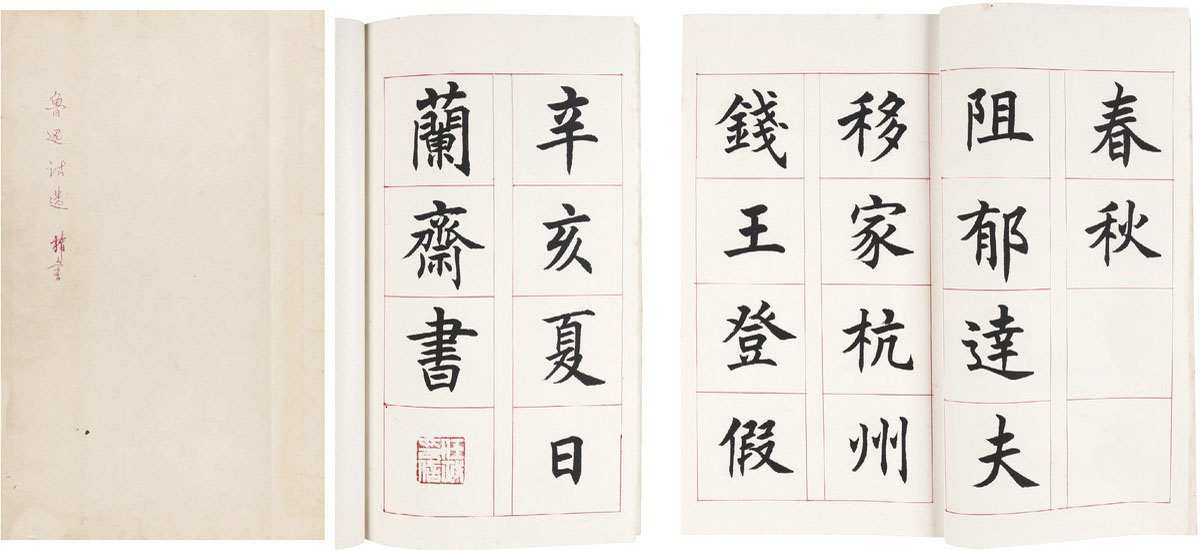 魯迅诗選 楷书
辛亥夏日
蘭齋書
春秋
阻郁達夫
移家杭州
錢王登假